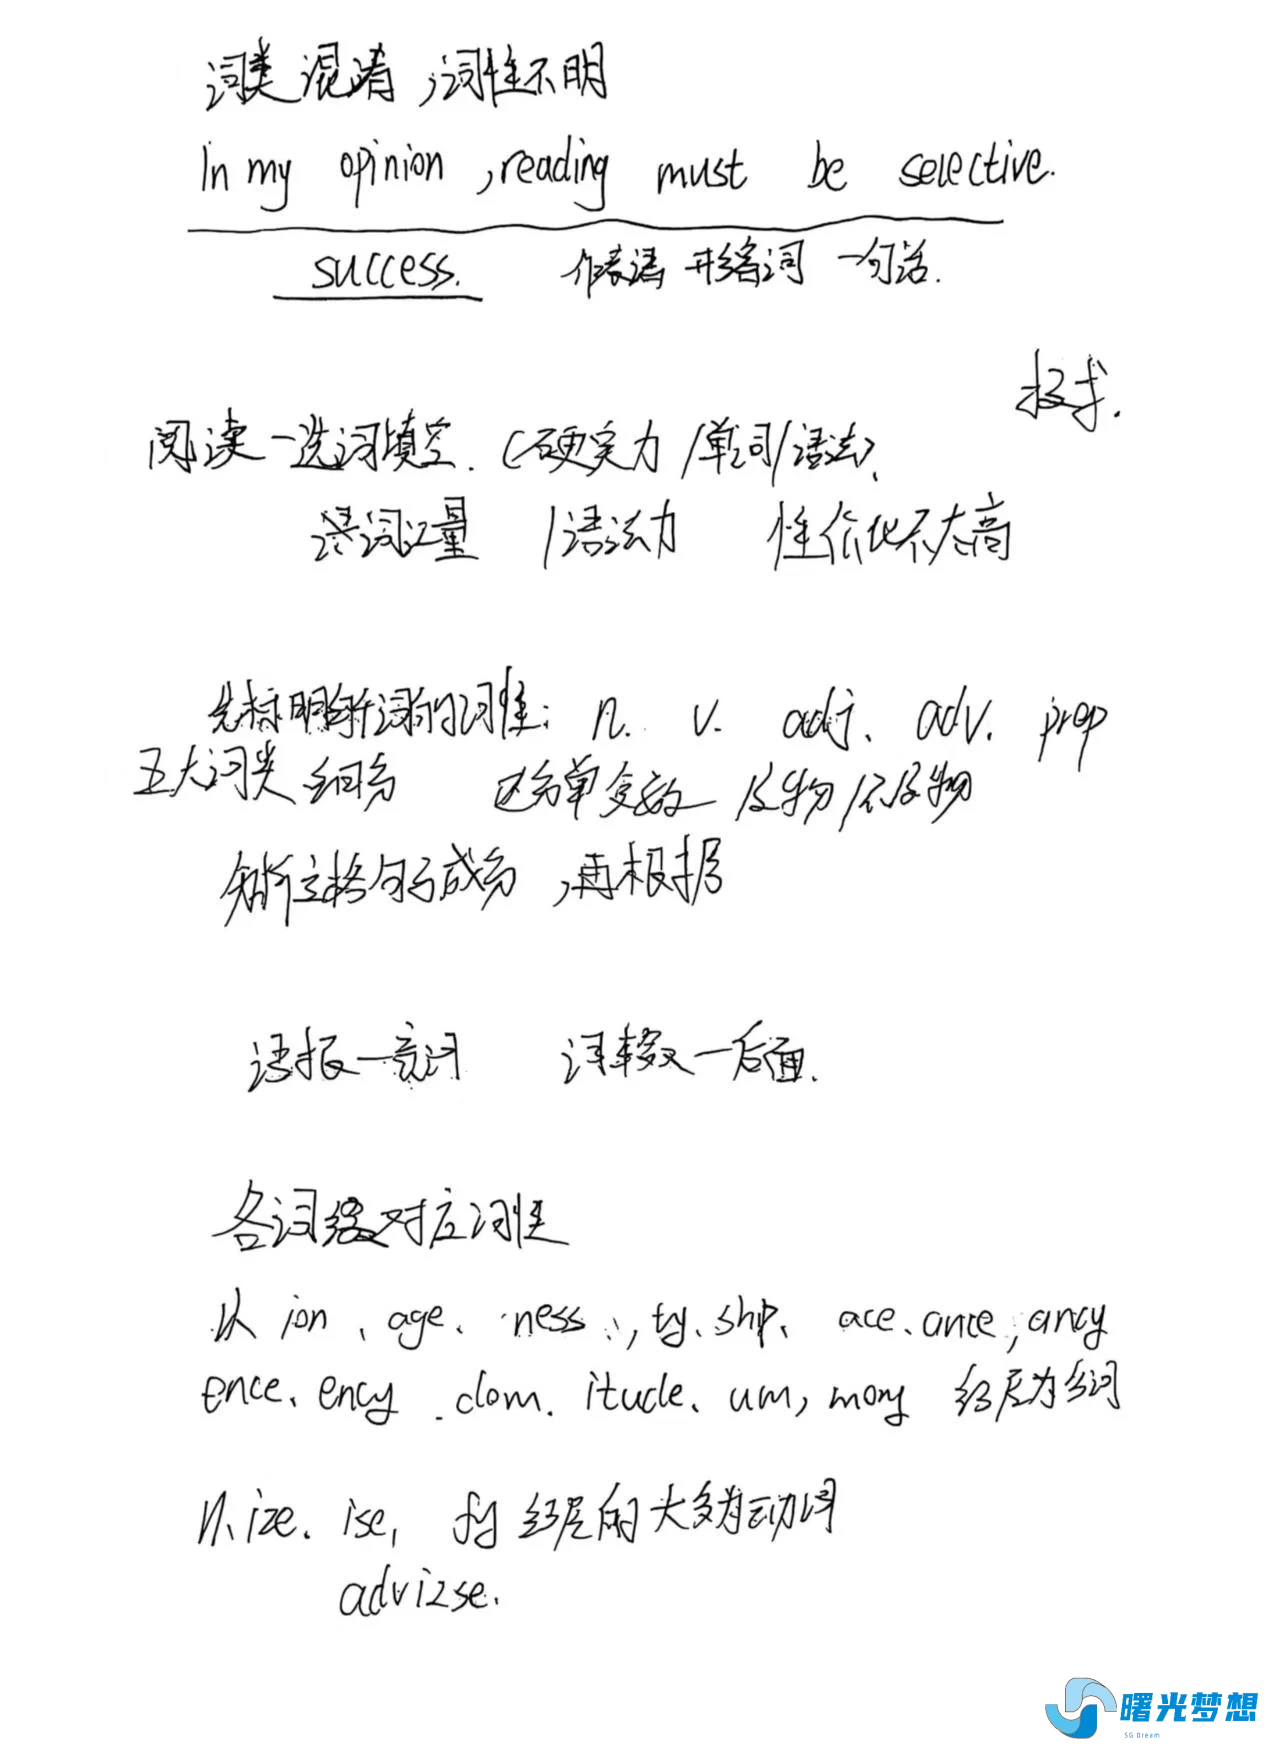 词类混淆，词性不明
In my opinion, reading must be selective.
success. 作表语 形容词 一句话.
技术.
阅读一选词填空. (硬实力/单词/语法.
词汇量 /语法力 性价比不太高
先标明所词的词性: n. v. adj、adv. prep
五大词类 细分 区分单复数 及物/不及物
句子成分，再根据
一 词 一后面.
各词缀对应词性
以 ion、age、ness、, ty、ship、ace、ance, ancy
ence、ency、dom、itude、um, mony 结尾为名词
以、ize、ise, fy 结尾的大多为动词
advizse.
曙光梦想
SG Dream